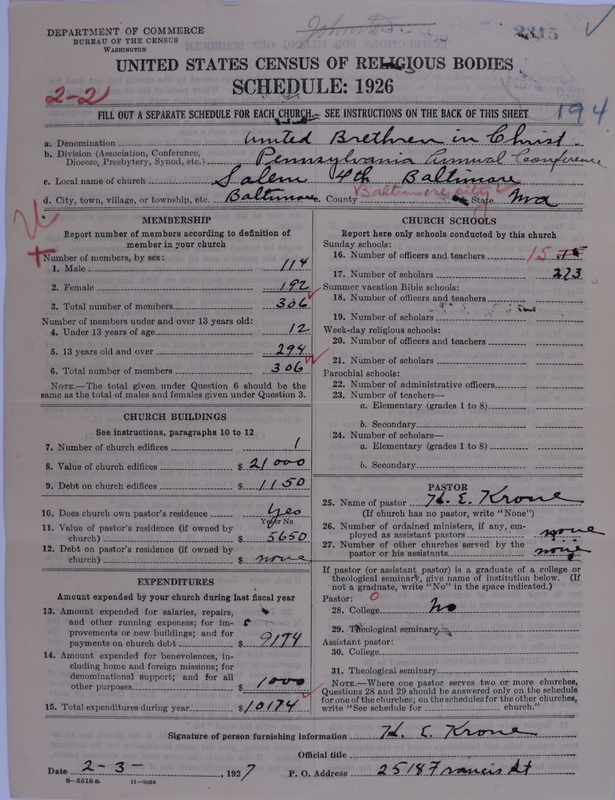 DEPARTMENT OF COMMERCE
BUREAU OF THE CENSUS
WASHINGTON
2315
UNITED STATES CENSUS OF RELIGIOUS BODIES
SCHEDULE: 1926
2-2
FILL OUT A SEPARATE SCHEDULE FOR EACH CHURCH. SEE INSTRUCTIONS ON THE BACK OF THIS SHEET
194
a. Denomination United Brethren in Christ
b. Division (Association, Conference, Diocese, Presbytery, Synod, etc.) Pennsylvania Annual Conference
c. Local name of church Salem 4th Baltimore
d. City, town, village, or township, etc. Baltimore County Baltimore City State Md
MEMBERSHIP
Report number of members according to definition of member in your church
Number of members, by sex:
1. Male 114
2. Female 192
3. Total number of members 306
Number of members under and over 13 years old:
4. Under 13 years of age 12
5. 13 years old and over 294
6. Total number of members 306
NOTE.—The total given under Question 6 should be the same as the total of males and females given under Question 3.
CHURCH BUILDINGS
See instructions, paragraphs 10 to 12
7. Number of church edifices 1
8. Value of church edifices $ 21000
9. Debt on church edifices $ 1150
10. Does church own pastor's residence Yes
Yes or No
11. Value of pastor's residence (if owned by church) $ 5650
12. Debt on pastor's residence (if owned by church) $ none
EXPENDITURES
Amount expended by your church during last fiscal year
13. Amount expended for salaries, repairs, and other running expenses; for improvements or new buildings; and for payments on church debt $ 9174
14. Amount expended for benevolences, including home and foreign missions; for denominational support; and for all other purposes $ 1000
15. Total expenditures during year $ 10174
CHURCH SCHOOLS
Report here only schools conducted by this church
Sunday schools:
16. Number of officers and teachers 15
17. Number of scholars 273
Summer vacation Bible schools:
18. Number of officers and teachers
19. Number of scholars
Week-day religious schools:
20. Number of officers and teachers
21. Number of scholars
Parochial schools:
22. Number of administrative officers
23. Number of teachers—
a. Elementary (grades 1 to 8)
b. Secondary
24. Number of scholars—
a. Elementary (grades 1 to 8)
b. Secondary
PASTOR
25. Name of pastor H. E. Krone
(If church has no pastor, write "None")
26. Number of ordained ministers, if any, employed as assistant pastors none
27. Number of other churches served by the pastor or his assistants none
If pastor (or assistant pastor) is a graduate of a college or theological seminary, give name of institution below. (If not a graduate, write "No" in the space indicated.)
Pastor: 0
28. College No
29. Theological seminary
Assistant pastor:
30. College
31. Theological seminary
NOTE.—Where one pastor serves two or more churches, Questions 28 and 29 should be answered only on the schedule for one of the churches; on the schedules for the other churches, write "See schedule for church."
Signature of person furnishing information H. E. Krone
Official title
Date 2-3-, 1927 P. O. Address 2518 Francis St
8-5518a 11-9054